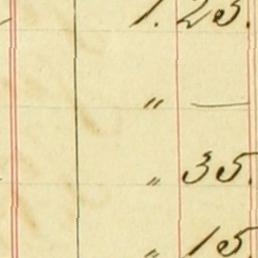 1.25.
" —
" 35.
" 15.